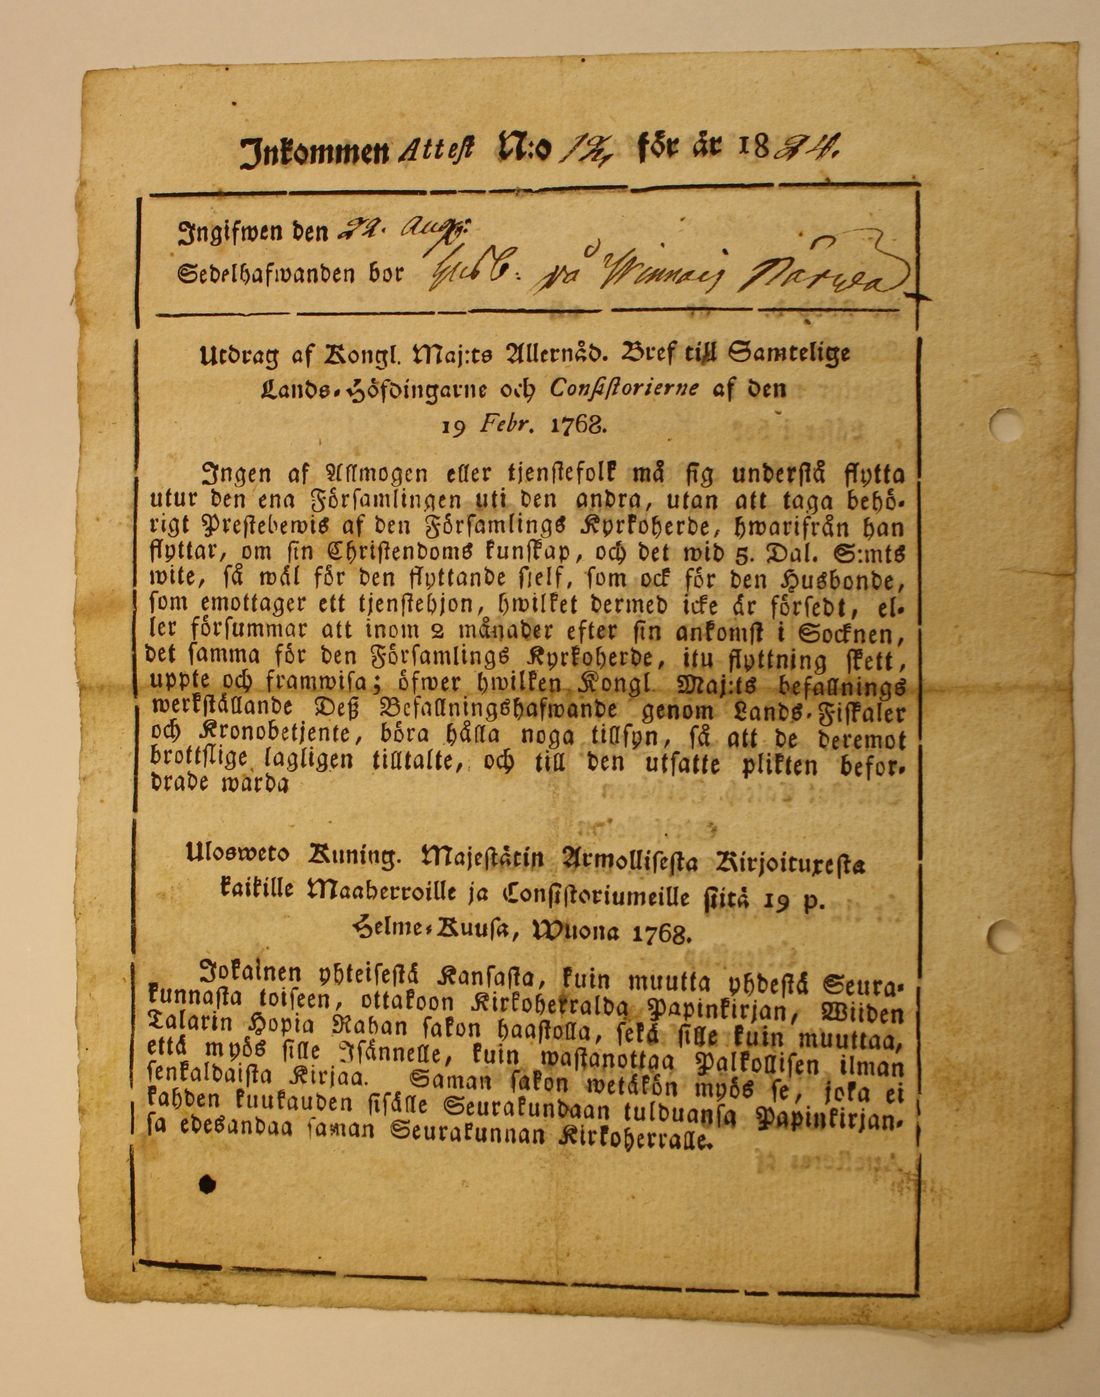 Inkommen Attest N:o 12, för år 1824.
Ingifwen den 22. Aug:
Sedelhafwanden bor på
Utdrag af Kongl. Maj:ts Allernåd. Bref till Samtelige
Lands-Höfdingarne och Consistorierne af den
19 Febr. 1768.
Ingen af Allmogen eller tjenstefolk må sig understå flytta
utur den ena Församlingen uti den andra, utan att taga behö-
rigt Prestebewis af den Församlings Kyrkoherde, hwarifrån han
flyttar, om sin Christendoms kunskap, och det wid 5. Dal. S:mts
wite, så wäl för den flyttande sjelf, som ock för den Husbonde,
som emottager ett tjenstehjon, hwilket dermed icke är försedt, el-
ler försummar att inom 2 månader efter sin ankomst i Socknen,
det samma för den Församlings Kyrkoherde, itu flyttning skett,
uppte och framwisa; öfwer hwilken Kongl. Maj:ts befallnings
werkställande Deß Befallningshafwande genom Lands-Fiskaler
och Kronobetjente, böra hålla noga tillsyn, så att de deremot
brottslige lagligen tilltalte, och till den utsatte plikten befor-
drade warda
Ulosweto Kuning. Majestätin Armollisesta Kirjoituxesta
kaikille Maaherroille ja Consistoriumeille siitä 19 p.
Helme-Kuusa, Wuona 1768.
Jokainen yhteisestä Kansasta, kuin muutta yhdestä Seura-
kunnasta toiseen, ottakoon Kirkoherralda Papinkirjan, Wiiden
Talarin Hopia Rahan sakon haastolla, sekä sille kuin muuttaa,
että myös sille Isännelle, kuin wastanottaa Palkollisen ilman
senkaldaista Kirjaa. Saman sakon wetäkön myös se, joka ei
kahden kuukauden sisälle Seurakundaan tulduansa Papinkirjan-
sa edesandaa saman Seurakunnan Kirkoherralle.